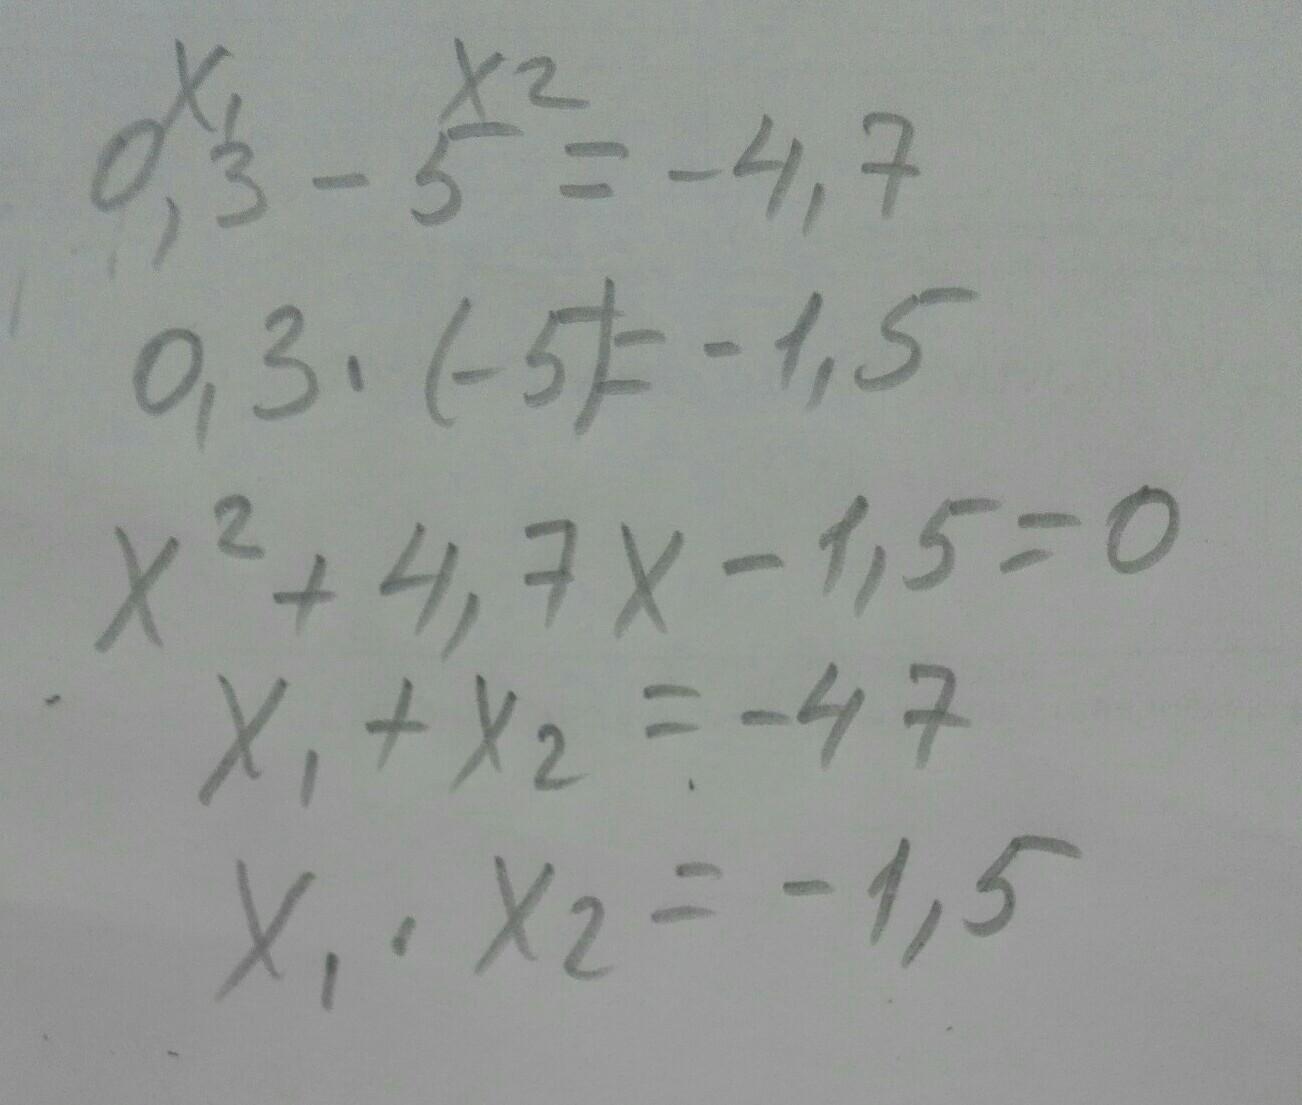 x₁ x₂
0,3 - 5 = -4,7
0,3 · (-5) = -1,5
x² + 4,7x - 1,5 = 0
x₁ + x₂ = -4 7
x₁ · x₂ = -1,5